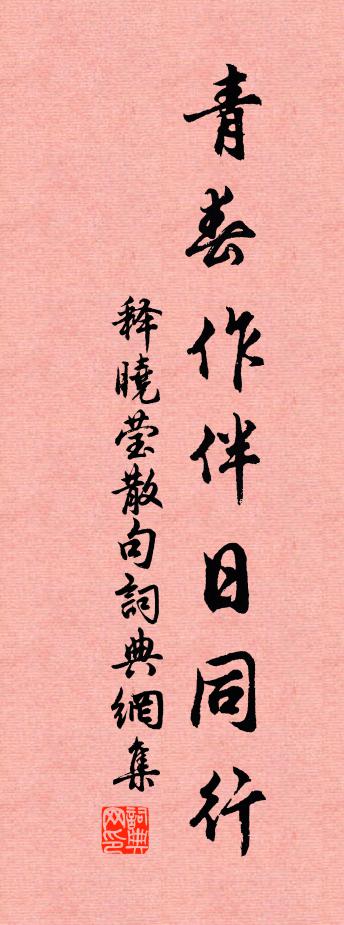 青春作伴日同行
释曉莹散句詞典網集
詞典网印